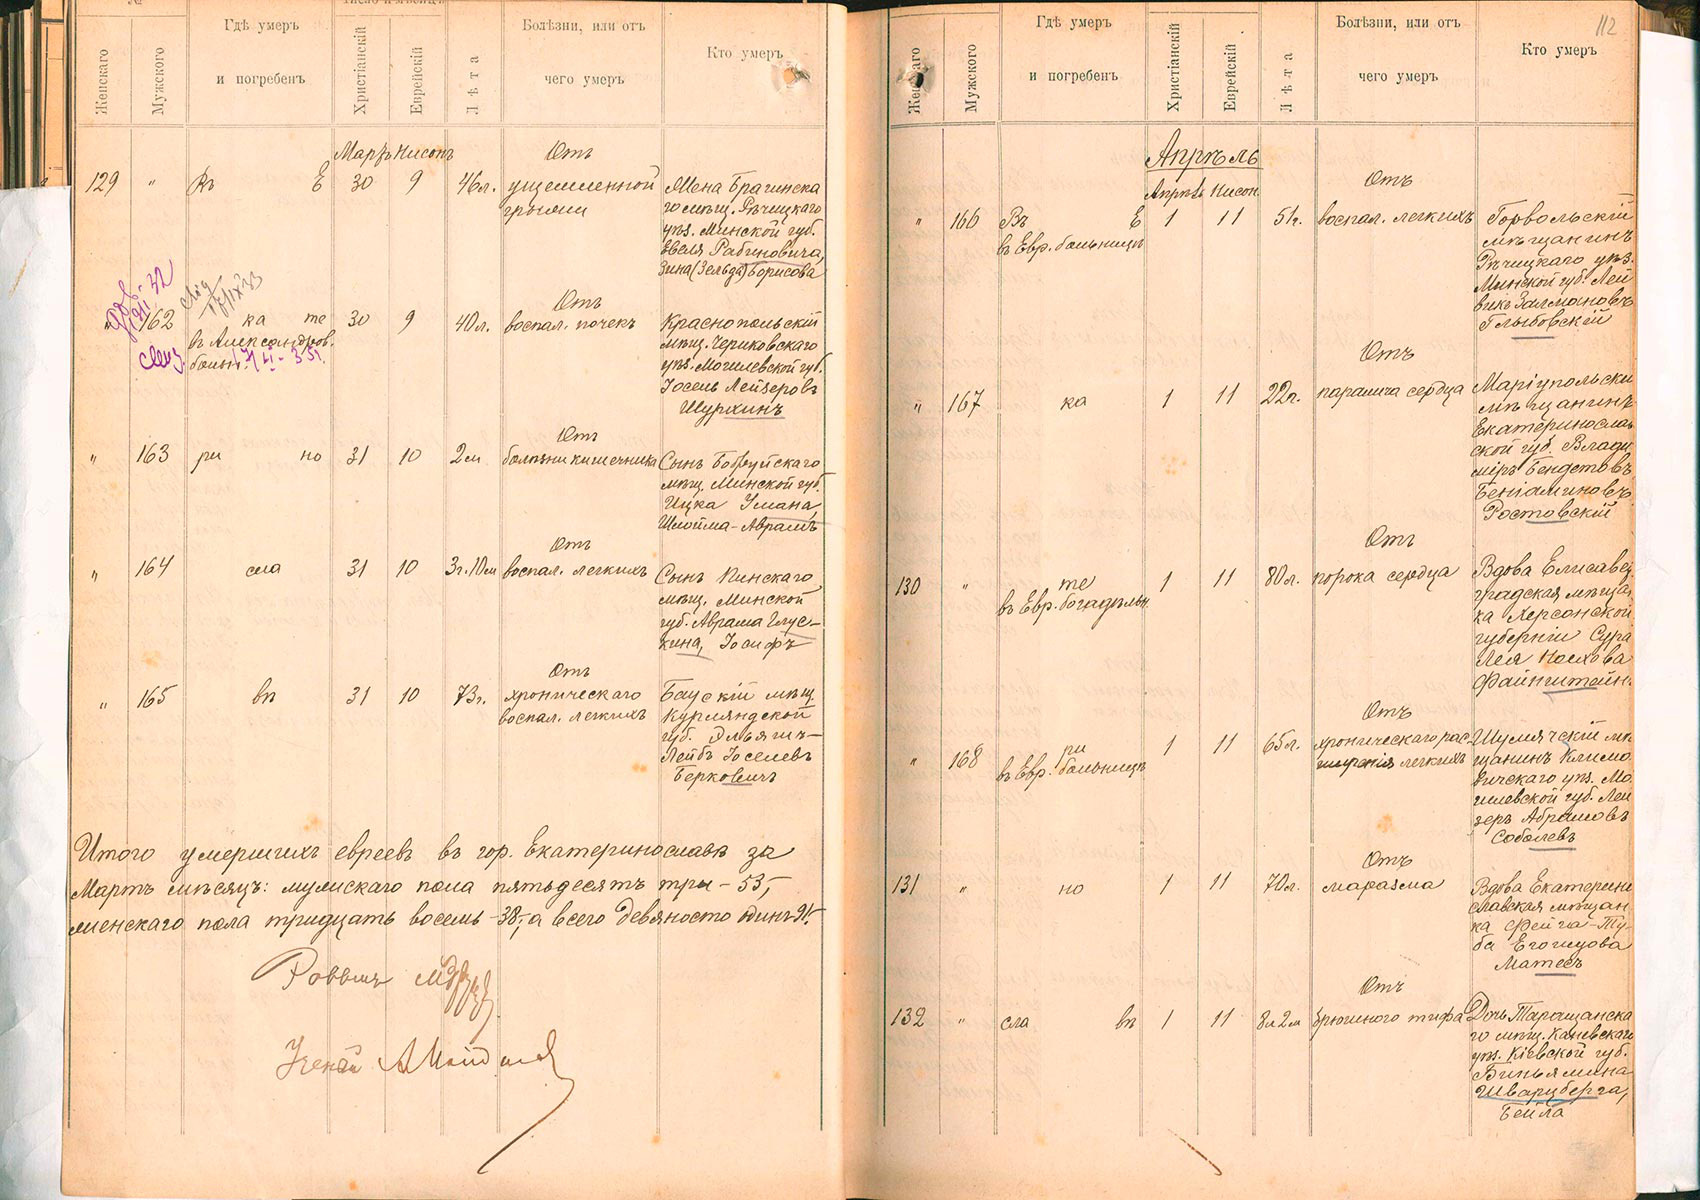 Женскаго
Мужского
Гдѣ умеръ
и погребенъ
Христіанскій
Еврейскій
Лѣта
Болѣзни, или отъ
чего умеръ
Кто умеръ
Мартъ Нисонъ
129 " Въ Е 30 9 46 л.
Отъ
ущемленной
грыжи
Жена Брагинска
го мѣщ. Рѣчицкаго
уѣз. Минской губ.
Евеля Рабиновича,
Зина (Зельда) Борисова
" 162 ка те 30 9 40 л.
в Александров.
больн.
Отъ
воспал. почекъ
Краснопольскій
мѣщ. Чериковскаго
уѣз. Могилевской губ.
Іосель Лейзеровъ
Шурхинъ
" 163 ри но 31 10 2 м
Отъ
болѣзни кишечника
Сынъ Бобруйскаго
мѣщ. Минской губ.
Ицка Умана,
Шлойма-Аврамъ
" 164 сла 31 10 3 г. 10 м
Отъ
воспал. легкихъ
Сынъ Пинскаго
мѣщ. Минской
губ. Аврама Глус-
кина, Іосифъ
" 165 вѣ 31 10 73 г.
Отъ
хроническаго
воспал. легкихъ
Баускій мѣщ
Курляндской
губ. Эльяшъ-
Лейбъ Іоселевъ
Берковичъ
Итого умершихъ евреевъ въ гор. Екатеринославѣ за
Мартъ мѣсяцъ: мужскаго пола пятьдесятъ три - 53,
женскаго пола тридцать восемь - 38, а всего девяносто одинъ - 91.
Раввинъ
112
Женскаго
Мужского
Гдѣ умеръ
и погребенъ
Христіанскій
Еврейскій
Лѣта
Болѣзни, или отъ
чего умеръ
Кто умеръ
Апрѣль
Апрѣль Нисон.
" 166 Въ Е 1 11 51 г.
в Евр. больницѣ
Отъ
воспал. легкихъ
Горвольскій
мѣщанинъ
Рѣчицкаго уѣз.
Минской губ. Лей
викъ Залмановъ
Глыбовскій
" 167 ка 1 11 22 г.
Отъ
паралича сердца
Маріупольскій
мѣщанинъ
Екатеринослав
ской губ. Влади
міръ Бендетовъ
Беніаминовъ
Ростовскій
130 " те 1 11 80 л.
въ Евр. богадѣльн.
Отъ
порока сердца
Вдова Елисавет
градская мѣщан
ка Херсонской
губерніи Сура
Лея
Файнштейн.
" 168 ри 1 11 65 л.
въ Евр. больницѣ
Отъ
хроническаго рас
ширенія легкихъ
Шумячскій мѣ
щанинъ Климо
вичскаго уѣз. Мо
гилевской губ. Лей
зеръ Абрамовъ
Соболевъ
131 " но 1 11 70 л.
Отъ
маразма
Вдова Екатерино
славская мѣщан
ка Фейга-Ту
ба
Матесъ
132 " сла вѣ 1 11 8 л 2 м
Отъ
брюшного тифа
Дочь Таращанска
го мѣщ. Каневскаго
уѣз. Кіевской губ.
Биньямина
Шварцберга,
Бейла